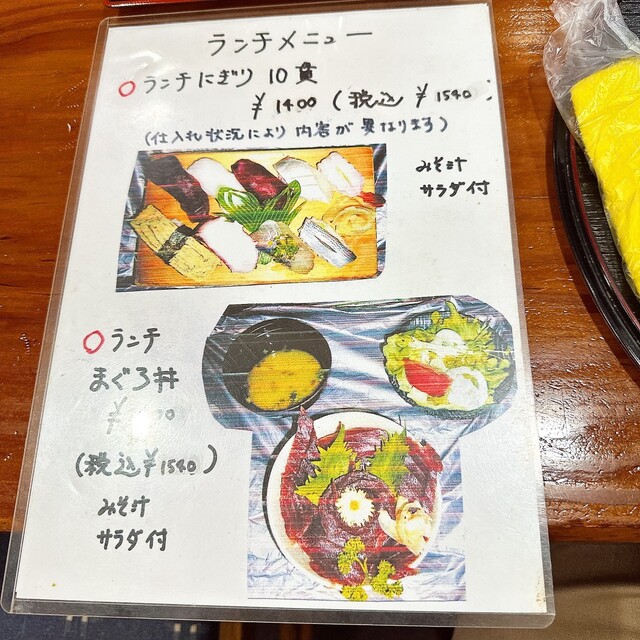 ランチメニュー
○ ランチにぎり 10貫
¥1400 (税込 ¥1540)
(仕入れ状況により 内容が異なります)
みそ汁
サラダ付
○ ランチ
まぐろ丼
(税込 ¥1540)
みそ汁
サラダ付